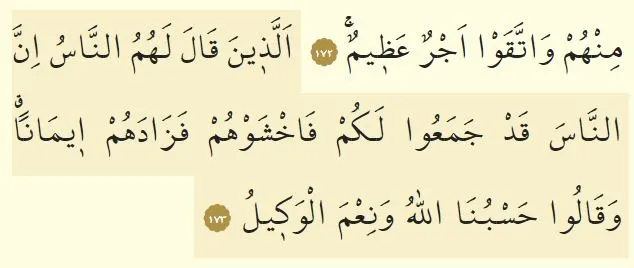 مِنْهُمْ وَاتَّقَوْا اَجْرٌ عَظ۪يمٌۚ ١٧٢ اَلَّذ۪ينَ قَالَ لَهُمُ النَّاسُ اِنَّ
النَّاسَ قَدْ جَمَعُوا لَكُمْ فَاخْشَوْهُمْ فَزَادَهُمْ ا۪يمَانًاۗ
وَقَالُوا حَسْبُنَا اللّٰهُ وَنِعْمَ الْوَك۪يلُ ١٧٣